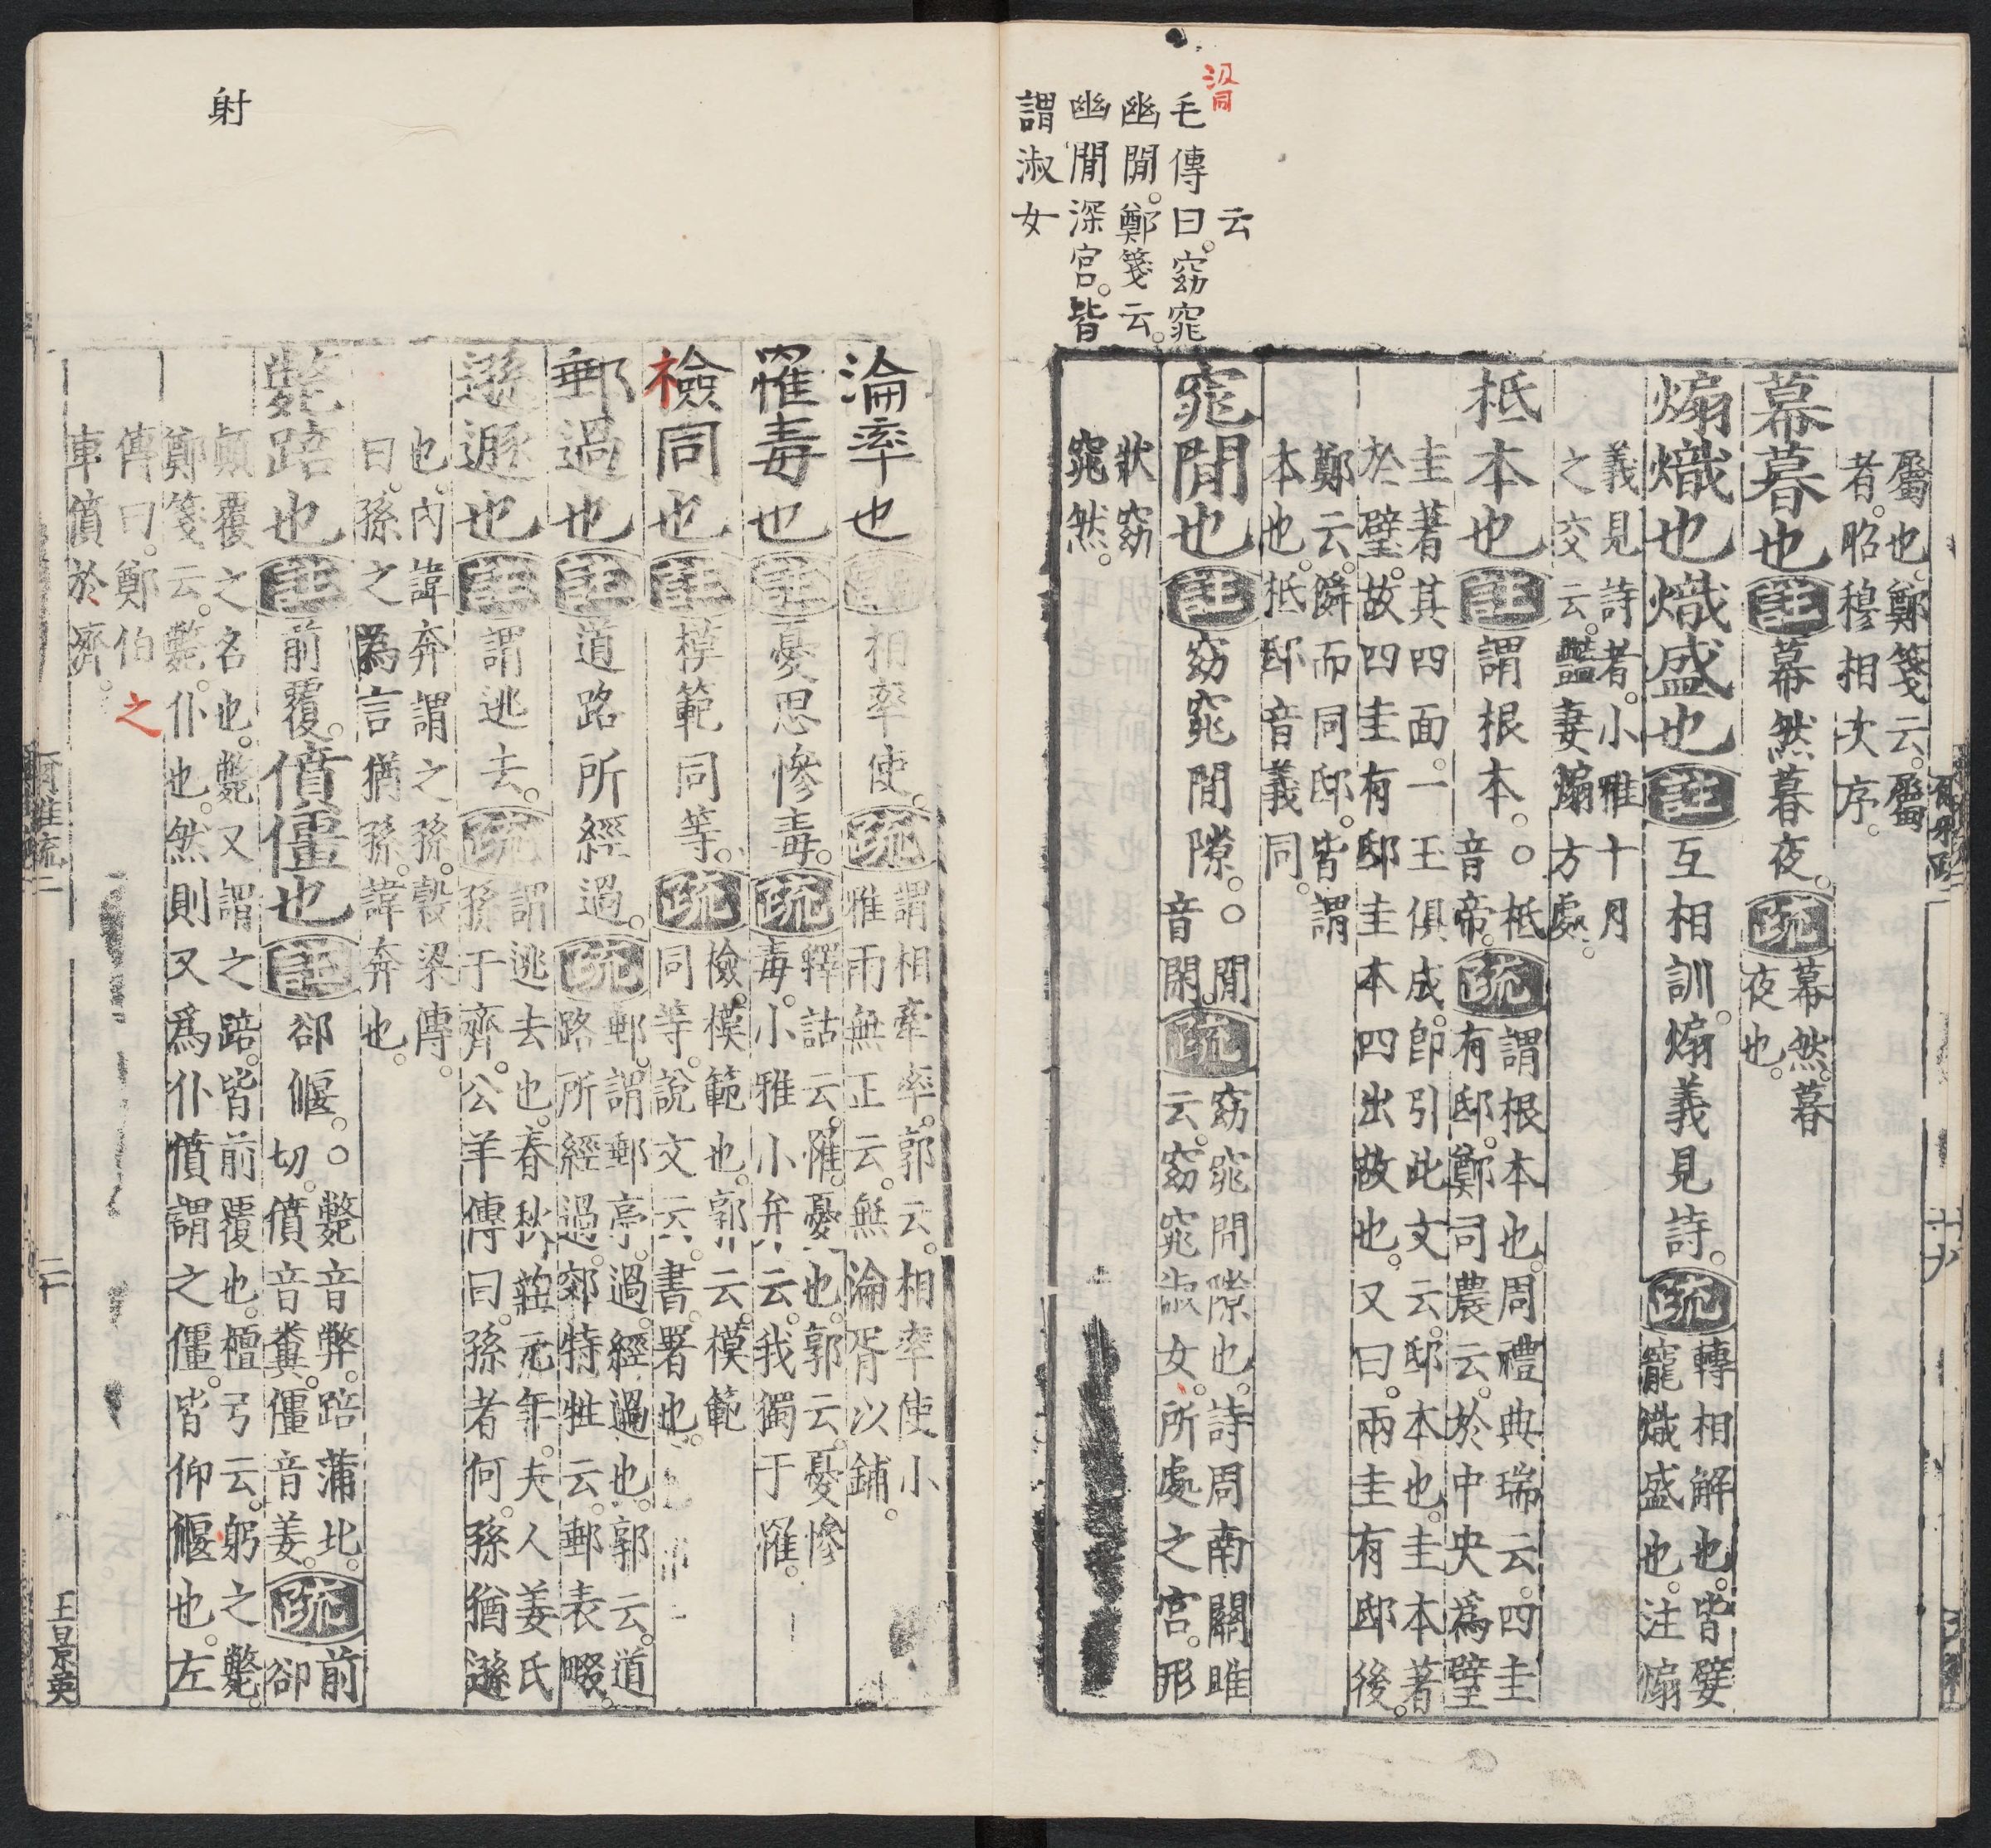 汲同
云
毛傳曰。窈窕
幽閒。鄭箋云。
幽閒深宮。皆
謂淑女
屬也。鄭箋云。屬
者。昭穆相次序。
幕暮也註幕然暮夜。疏幕然。暮
夜也。
煽熾也熾盛也註互相訓。煽義見詩。疏轉相解也。皆嬖
寵熾盛也。注煽
義見詩者。小雅十月
之交云。豔妻煽方處。
柢本也註謂根本。○柢
音帝。疏謂根本也。周禮典瑞云。四圭
有邸。鄭司農云。於中央爲璧
圭著其四面。一玉俱成。卽引此文云。邸本也。圭本著
於璧。故四圭有邸圭本四出故也。又曰。兩圭有邸後。
鄭云。僢而同邸。皆謂
本也。柢邸音義同。
窕閒也註窈窕閒隙。○閒
音閑。疏窈窕閒隙也。詩周南關雎
云。窈窕淑女。所處之宮。形
狀窈
窕然。
爾雅疏
十九
射
淪率也註相率使。疏謂相牽率。郭云。相率使小
雅雨無正云。無淪胥以鋪。
罹毒也註憂思慘毒。疏釋詁云。罹。憂也。郭云。憂慘
毒。小雅小弁云。我獨于罹。
檢同也註模範同等。疏檢。模範也。郭云。模範
同等。說文云。書署也。
郵過也註道路所經過。疏郵。謂郵亭。過。經過也。郭云。道
路所經過。郊特牲云。郵表畷。
遜遯也註謂逃去。疏謂逃去也。春秋莊元年。夫人姜氏
孫于齊。公羊傳曰。孫者何。孫猶遜
也。內諱奔謂之孫。穀梁傳。
曰。孫之爲言猶孫。諱奔也。
斃踣也註前覆。僨僵也註卻偃。○斃音弊。踣蒲北
切。僨音糞。僵音姜。疏前
卻
顛覆之名也。斃又謂之踣。皆前覆也。檀弓云。射之斃。
鄭箋云。斃。仆也。然則又爲仆僨謂之僵。皆仰偃也。左
傳曰。鄭伯之
車僨於濟。
爾雅疏二
二十
王景英